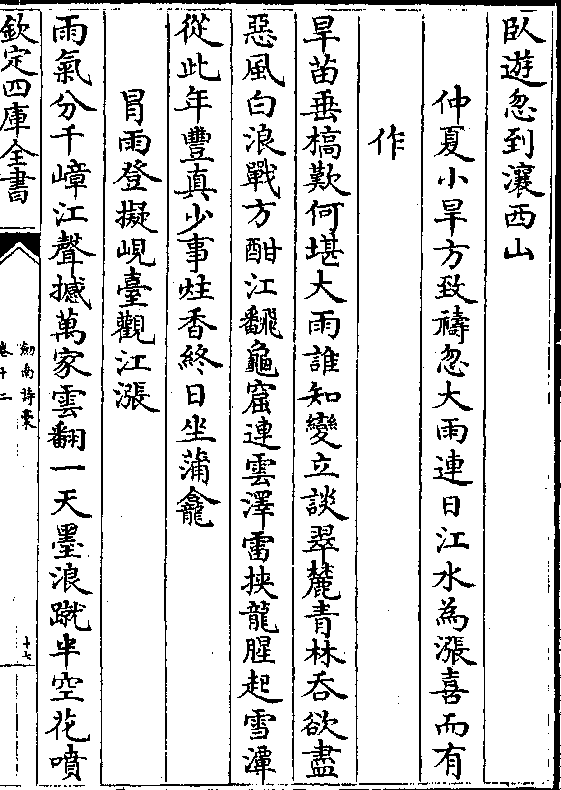 臥遊忽到瀼西山
仲夏小旱方致禱忽大雨連日江水為漲喜而有
作
旱苗垂槁歎何堪大雨誰知變立談翠麓青林呑欲盡
惡風白浪戰方酣江翻龜窟連雲澤雷挾龍腥起雪潭
從此年豐真少事炷香終日坐蒲龕
冒雨登擬峴臺觀江漲
雨氣分千嶂江聲撼萬家雲翻一天墨浪蹴半空花噴
欽定四庫全書
劒南詩稾
卷十二
十七